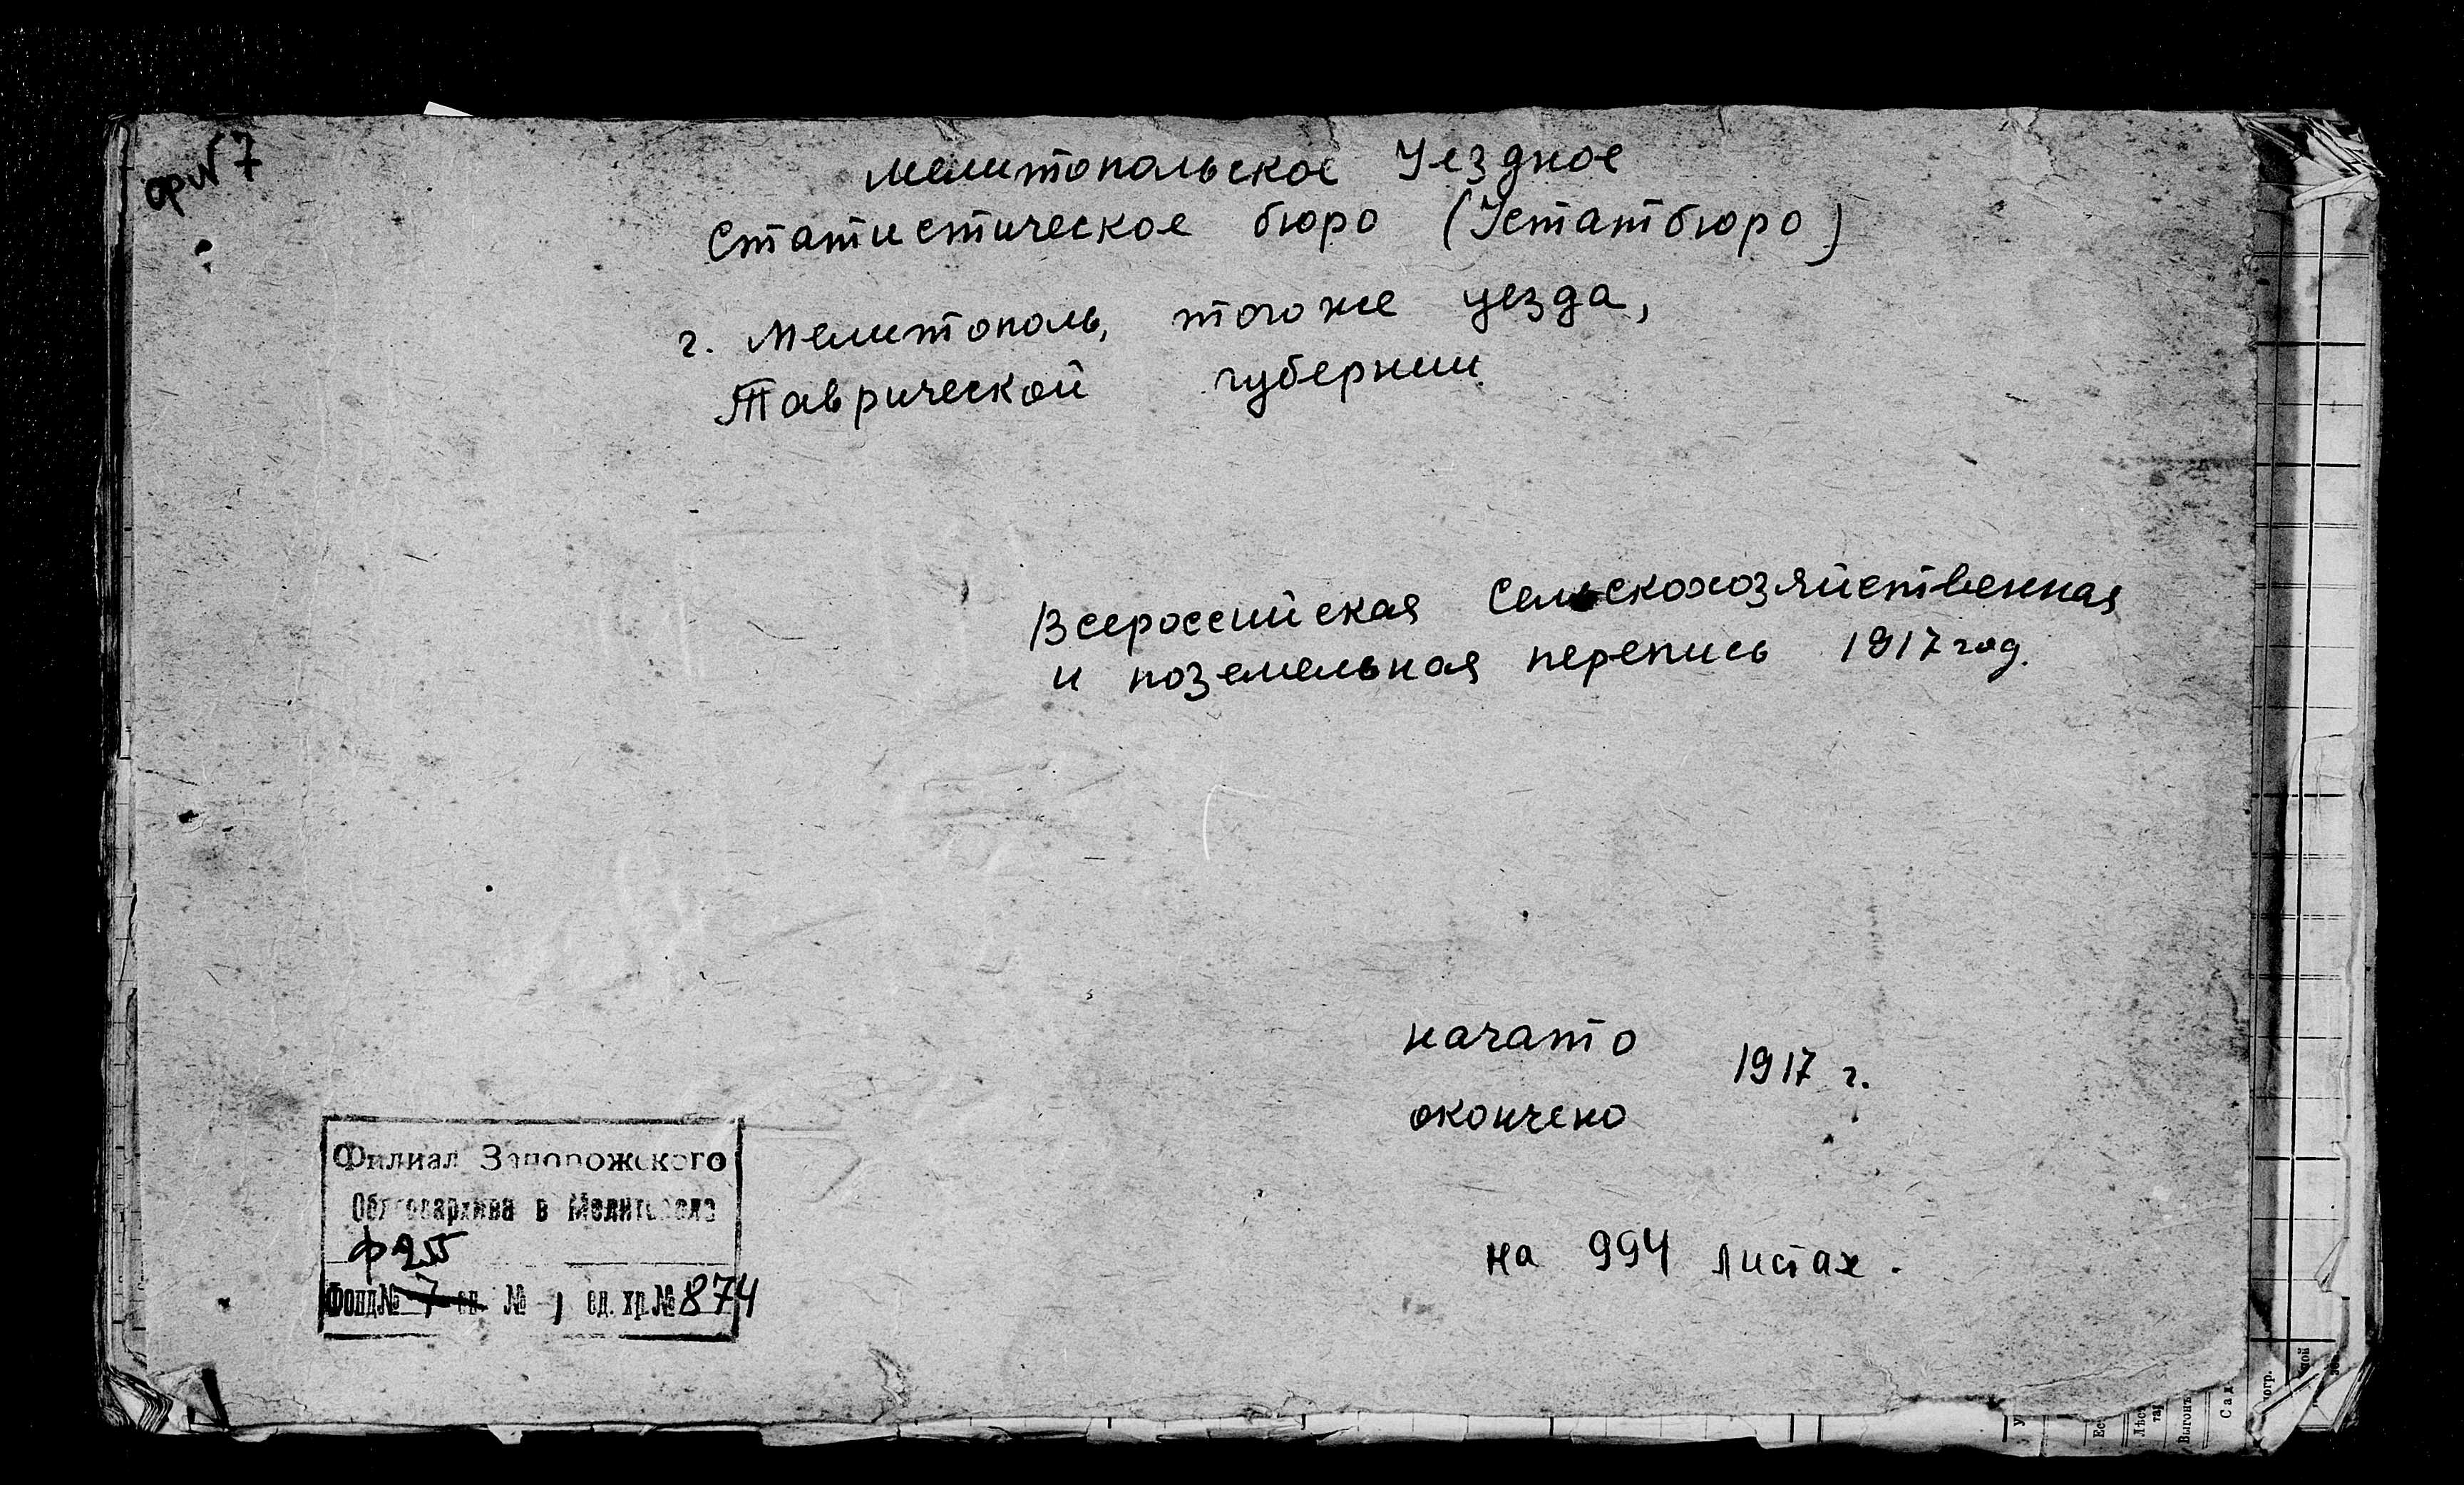 ор № 7
Мелитопольское Уездное
Статистическое бюро (Устатбюро)
г. Мелитополь, тогоже уезда,
Таврической губернии
Всероссийская Сельскохозяйственная
и поземельная перепись 1917 год.
начато
1917 г.
окончено
на 994 листах.
Филиал Запорожского
Облгосархива в Мелитополе
Фонд № 7 оп. № 1, ед. хр. № 874
Выгонъ
Сад